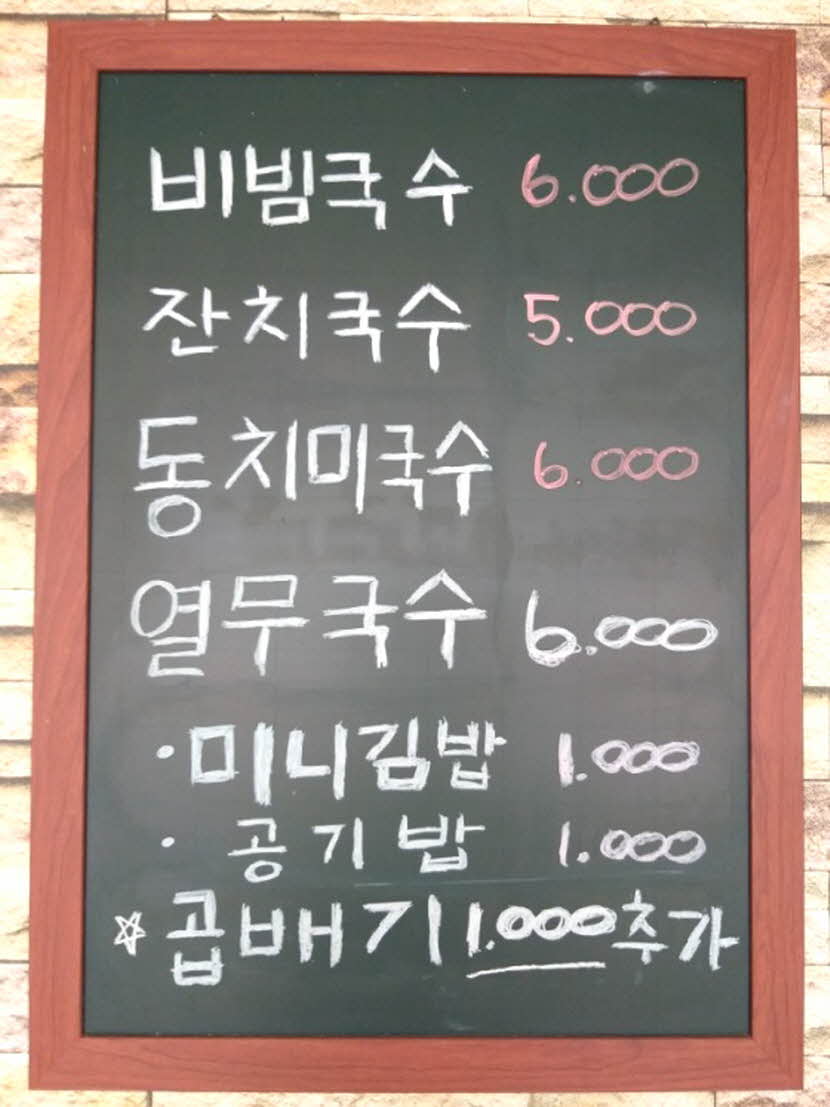 비빔국수 6.000
잔치국수 5.000
동치미국수 6.000
열무국수 6.000
·미니김밥 1.000
· 공기밥 1.000
☆곱배기 1.000추가